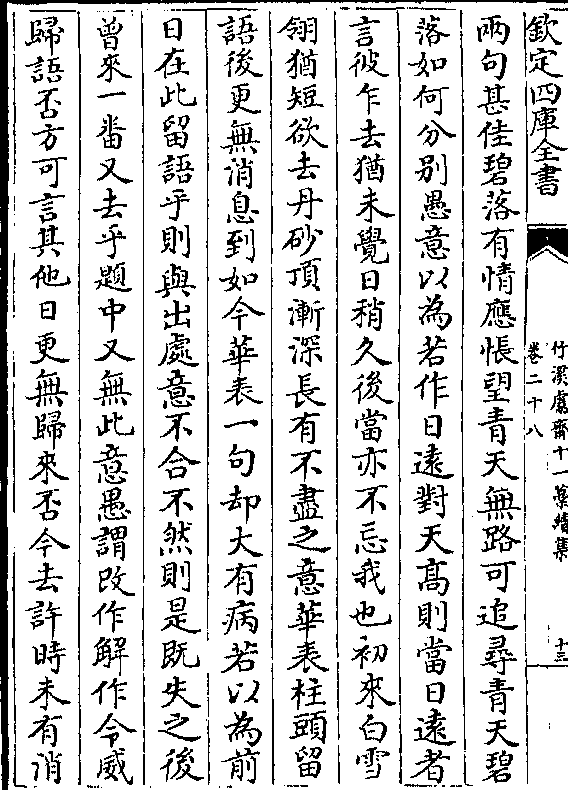 欽定四庫全書
竹溪鬳齋十一藁續集
卷二十八
十三
兩句甚佳碧落有情應悵望青天無路可追尋青天碧
落如何分别愚意以為若作日逺對天髙則當日逺者
言彼乍去猶未覺日稍久後當亦不忘我也初來白雪
翎猶短欲去丹砂頂漸深長有不盡之意華表柱頭留
語後更無消息到如今華表一句却大有病若以為前
日在此留語乎則與出處意不合不然則是既失之後
曾來一畨又去乎題中又無此意愚謂改作解作令威
歸語否方可言其他日更無歸來否今去許時未有消